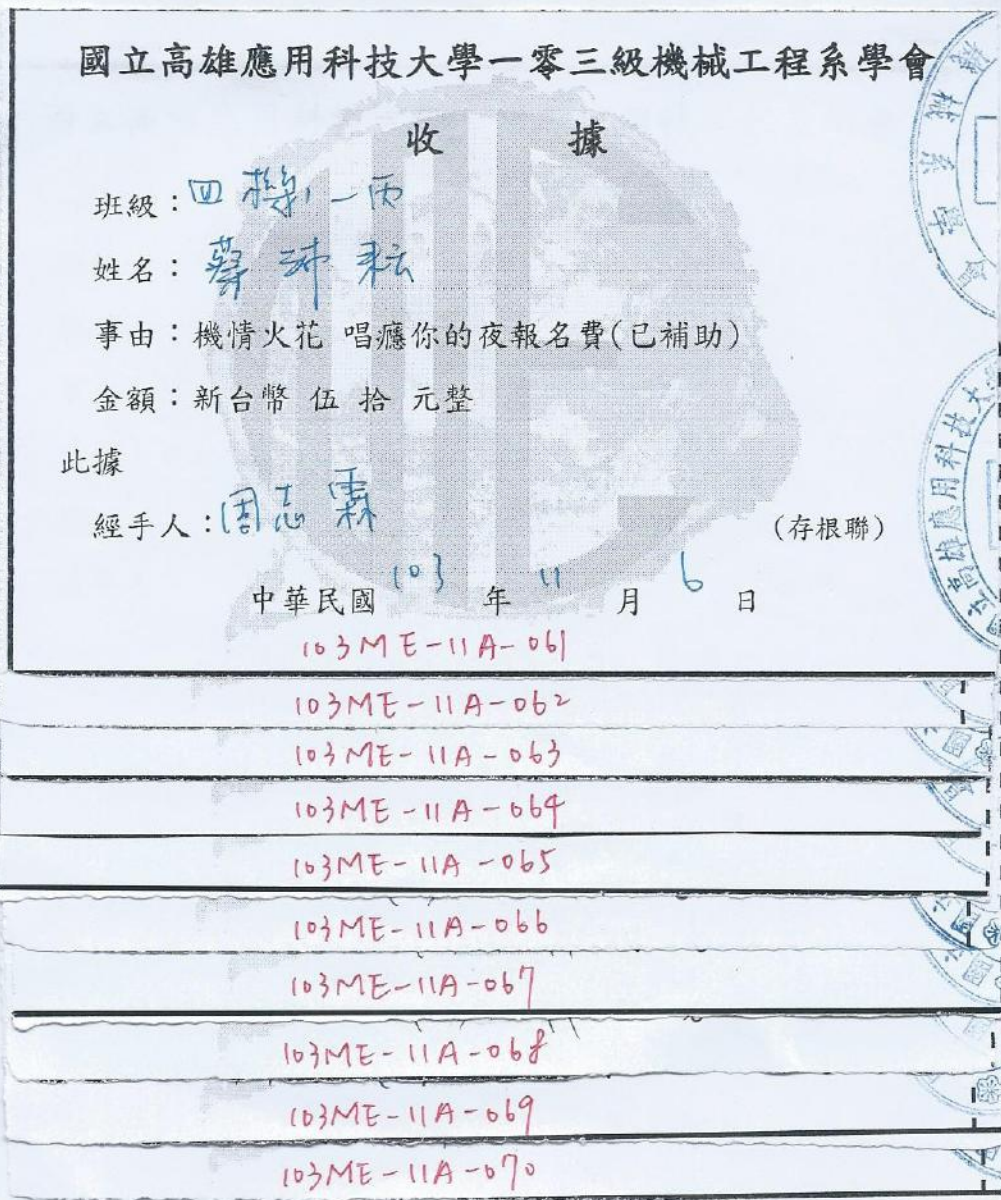 國立高雄應用科技大學一零三級機械工程系學會
收 據
班級：四機一丙
姓名：蔡沛耘
事由：機情火花 唱癮你的夜報名費(已補助)
金額：新台幣 伍 拾 元整
此據
經手人：周志霖
(存根聯)
中華民國 103 年 11 月 6 日
103ME-11A-061
103ME-11A-062
103ME-11A-063
103ME-11A-064
103ME-11A-065
103ME-11A-066
103ME-11A-067
103ME-11A-068
103ME-11A-069
103ME-11A-070
機械系學會
國立高雄應用科技大